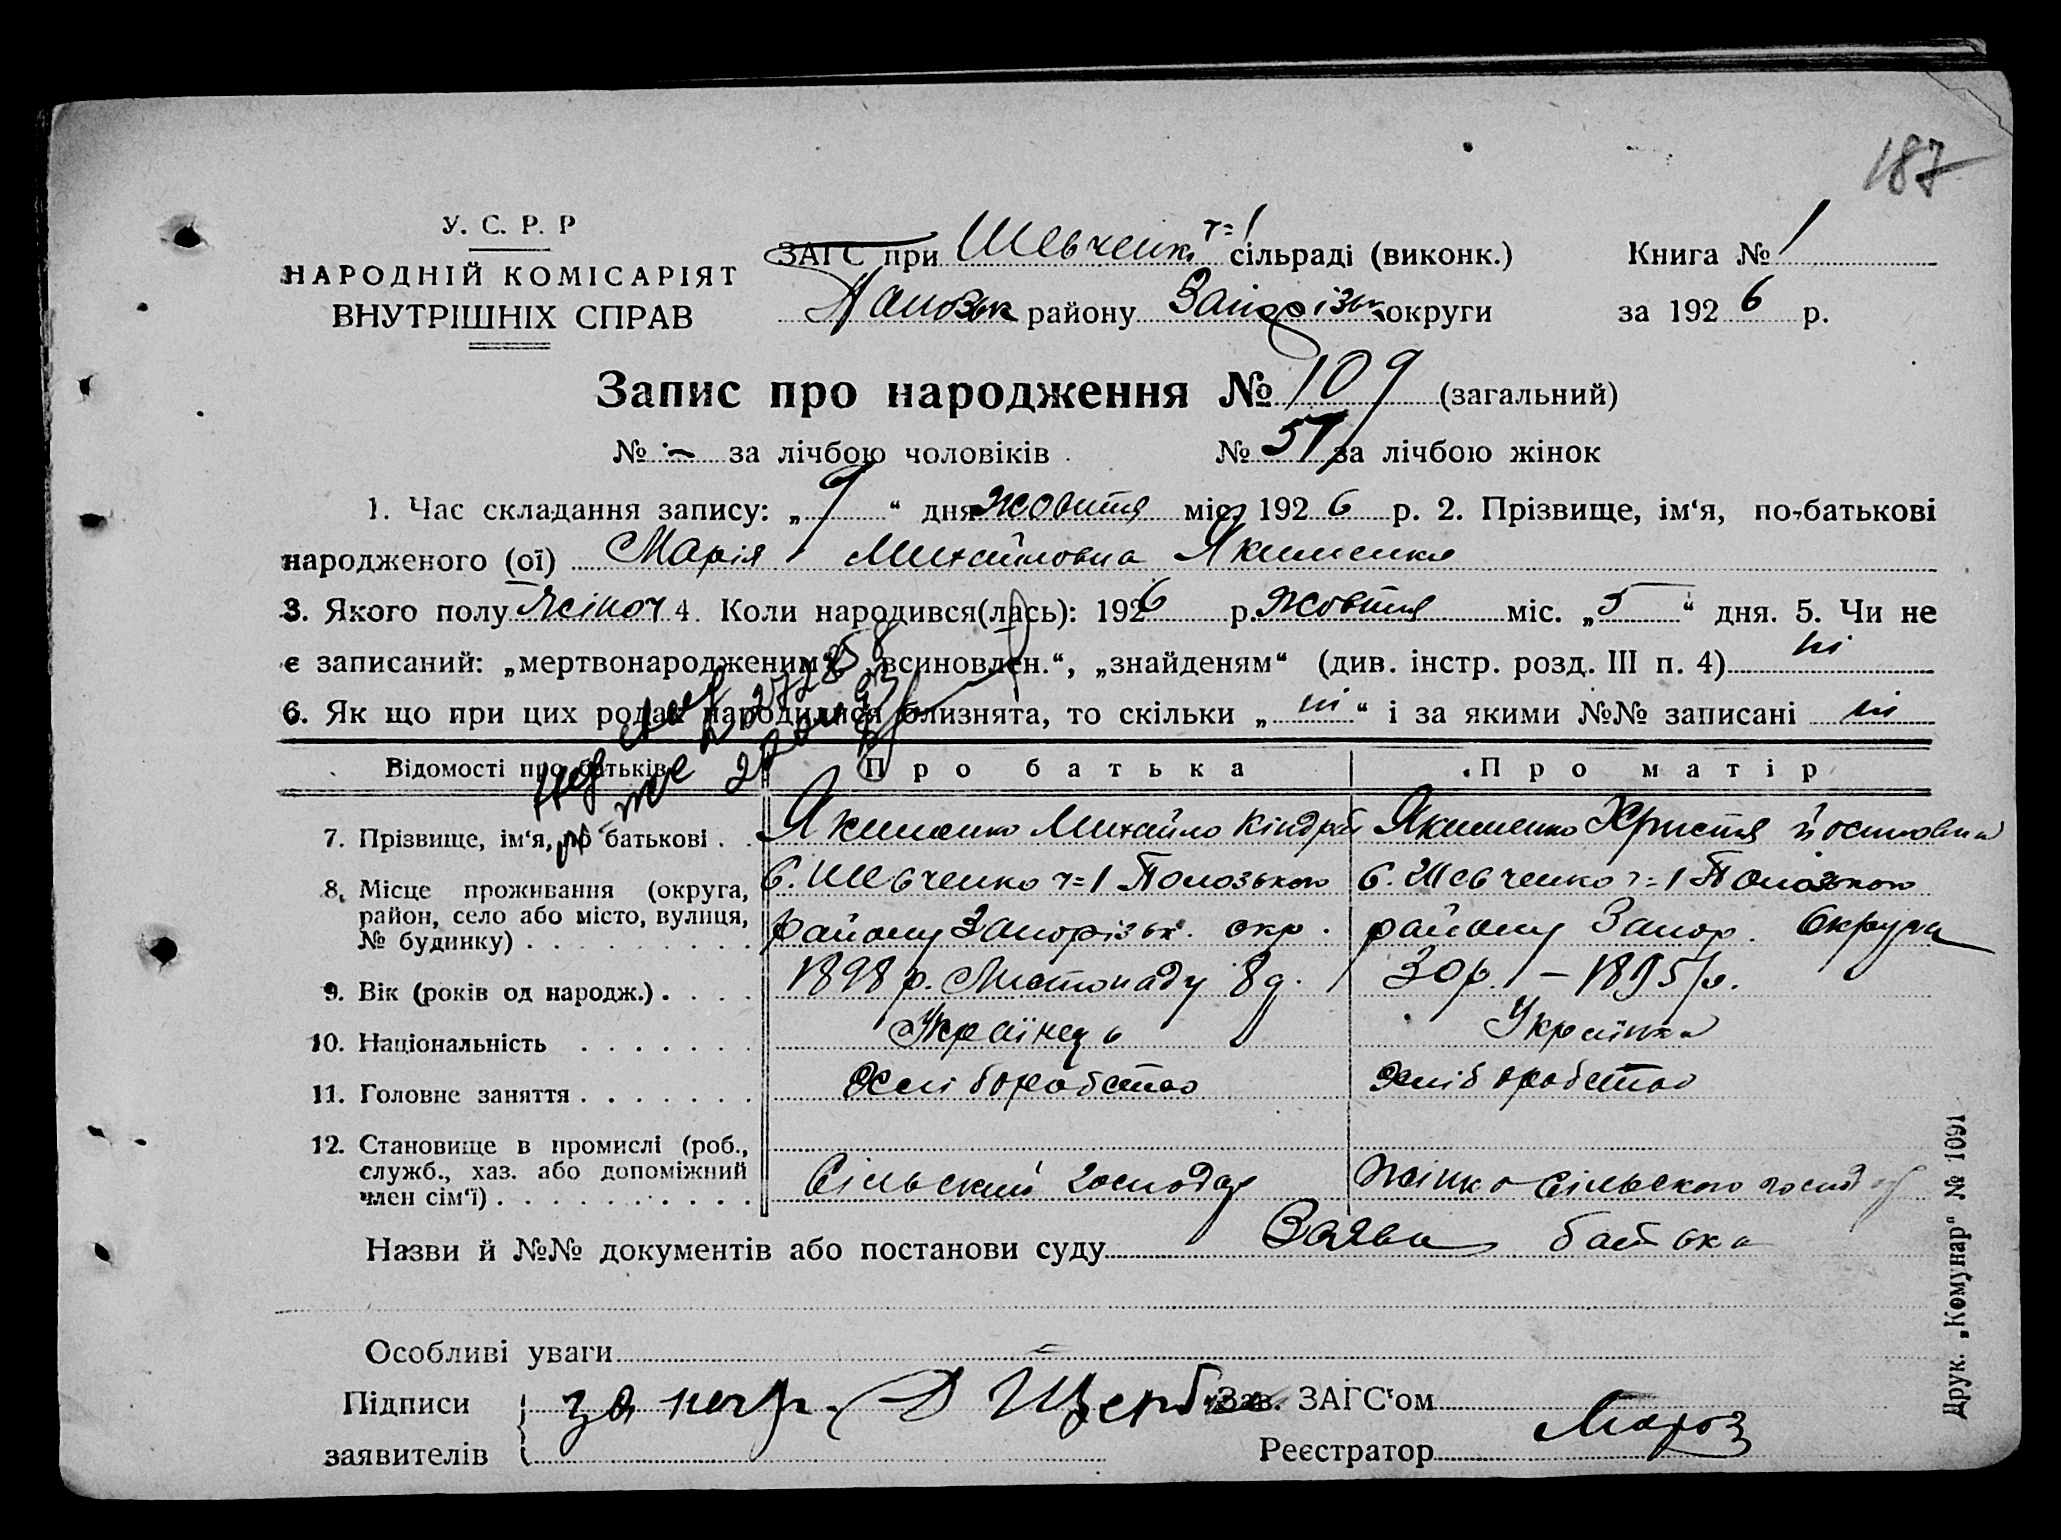 187
У. С. Р. Р
НАРОДНІЙ КОМІСАРІЯТ
ВНУТРІШНІХ СПРАВ
ЗАГС при Шевченкі ч=1 сільраді (виконк.) Книга № 1
району Запорізьк округи за 192 6 р.
Запис про народження № 109 (загальний)
№ - за лічбою чоловіків № 57 за лічбою жінок
1. Час складання запису: „ 9 “ дня жовтня міс 192 6 р. 2. Прізвище, ім‘я, по-батькові
народженого (ої) Марія Михайловна Якименко
3. Якого полу жіноч 4. Коли народився(лась): 192 6 р. жовтня міс. „ 5 “ дня. 5. Чи не
є записаний: „мертвонародженим“, „всиновлен.“, „знайденям“ (див. інстр. розд. III п. 4) ні
6. Як що при цих родах народилися близнята, то скільки „ ні “ і за якими №№ записані ні
Відомості про батьків Про батька Про матір
7. Прізвище, ім‘я, по батькові . . Якименко Михайло Кіндрат Якименко Христя Йосиповна
8. Місце проживання (округа, район, село або місто, вулиця, № будинку) . с. Шевченко ч=1 Полозького району Запорізьк. окр. с. Шевченко ч=1 Полозького району Запор. Округи
9. Вік (років од народж.) . 1898 р. Листопаду 8 д. 30 р. - 1895 р.
10. Національність . Українець Українка
11. Головне заняття . Хліборобство Хліборобство
12. Становище в промислі (роб., служб., хаз. або допоміжний член сім‘ї) . Сільский господар Жінка сільського господар
Назви й №№ документів або постанови суду Заява батька
Особливі уваги -
Підписи за негр. Д Щерб Зав. ЗАГС‘ом
заявителів Реєстратор Мороз
Друк. „Комунар“ № 1091